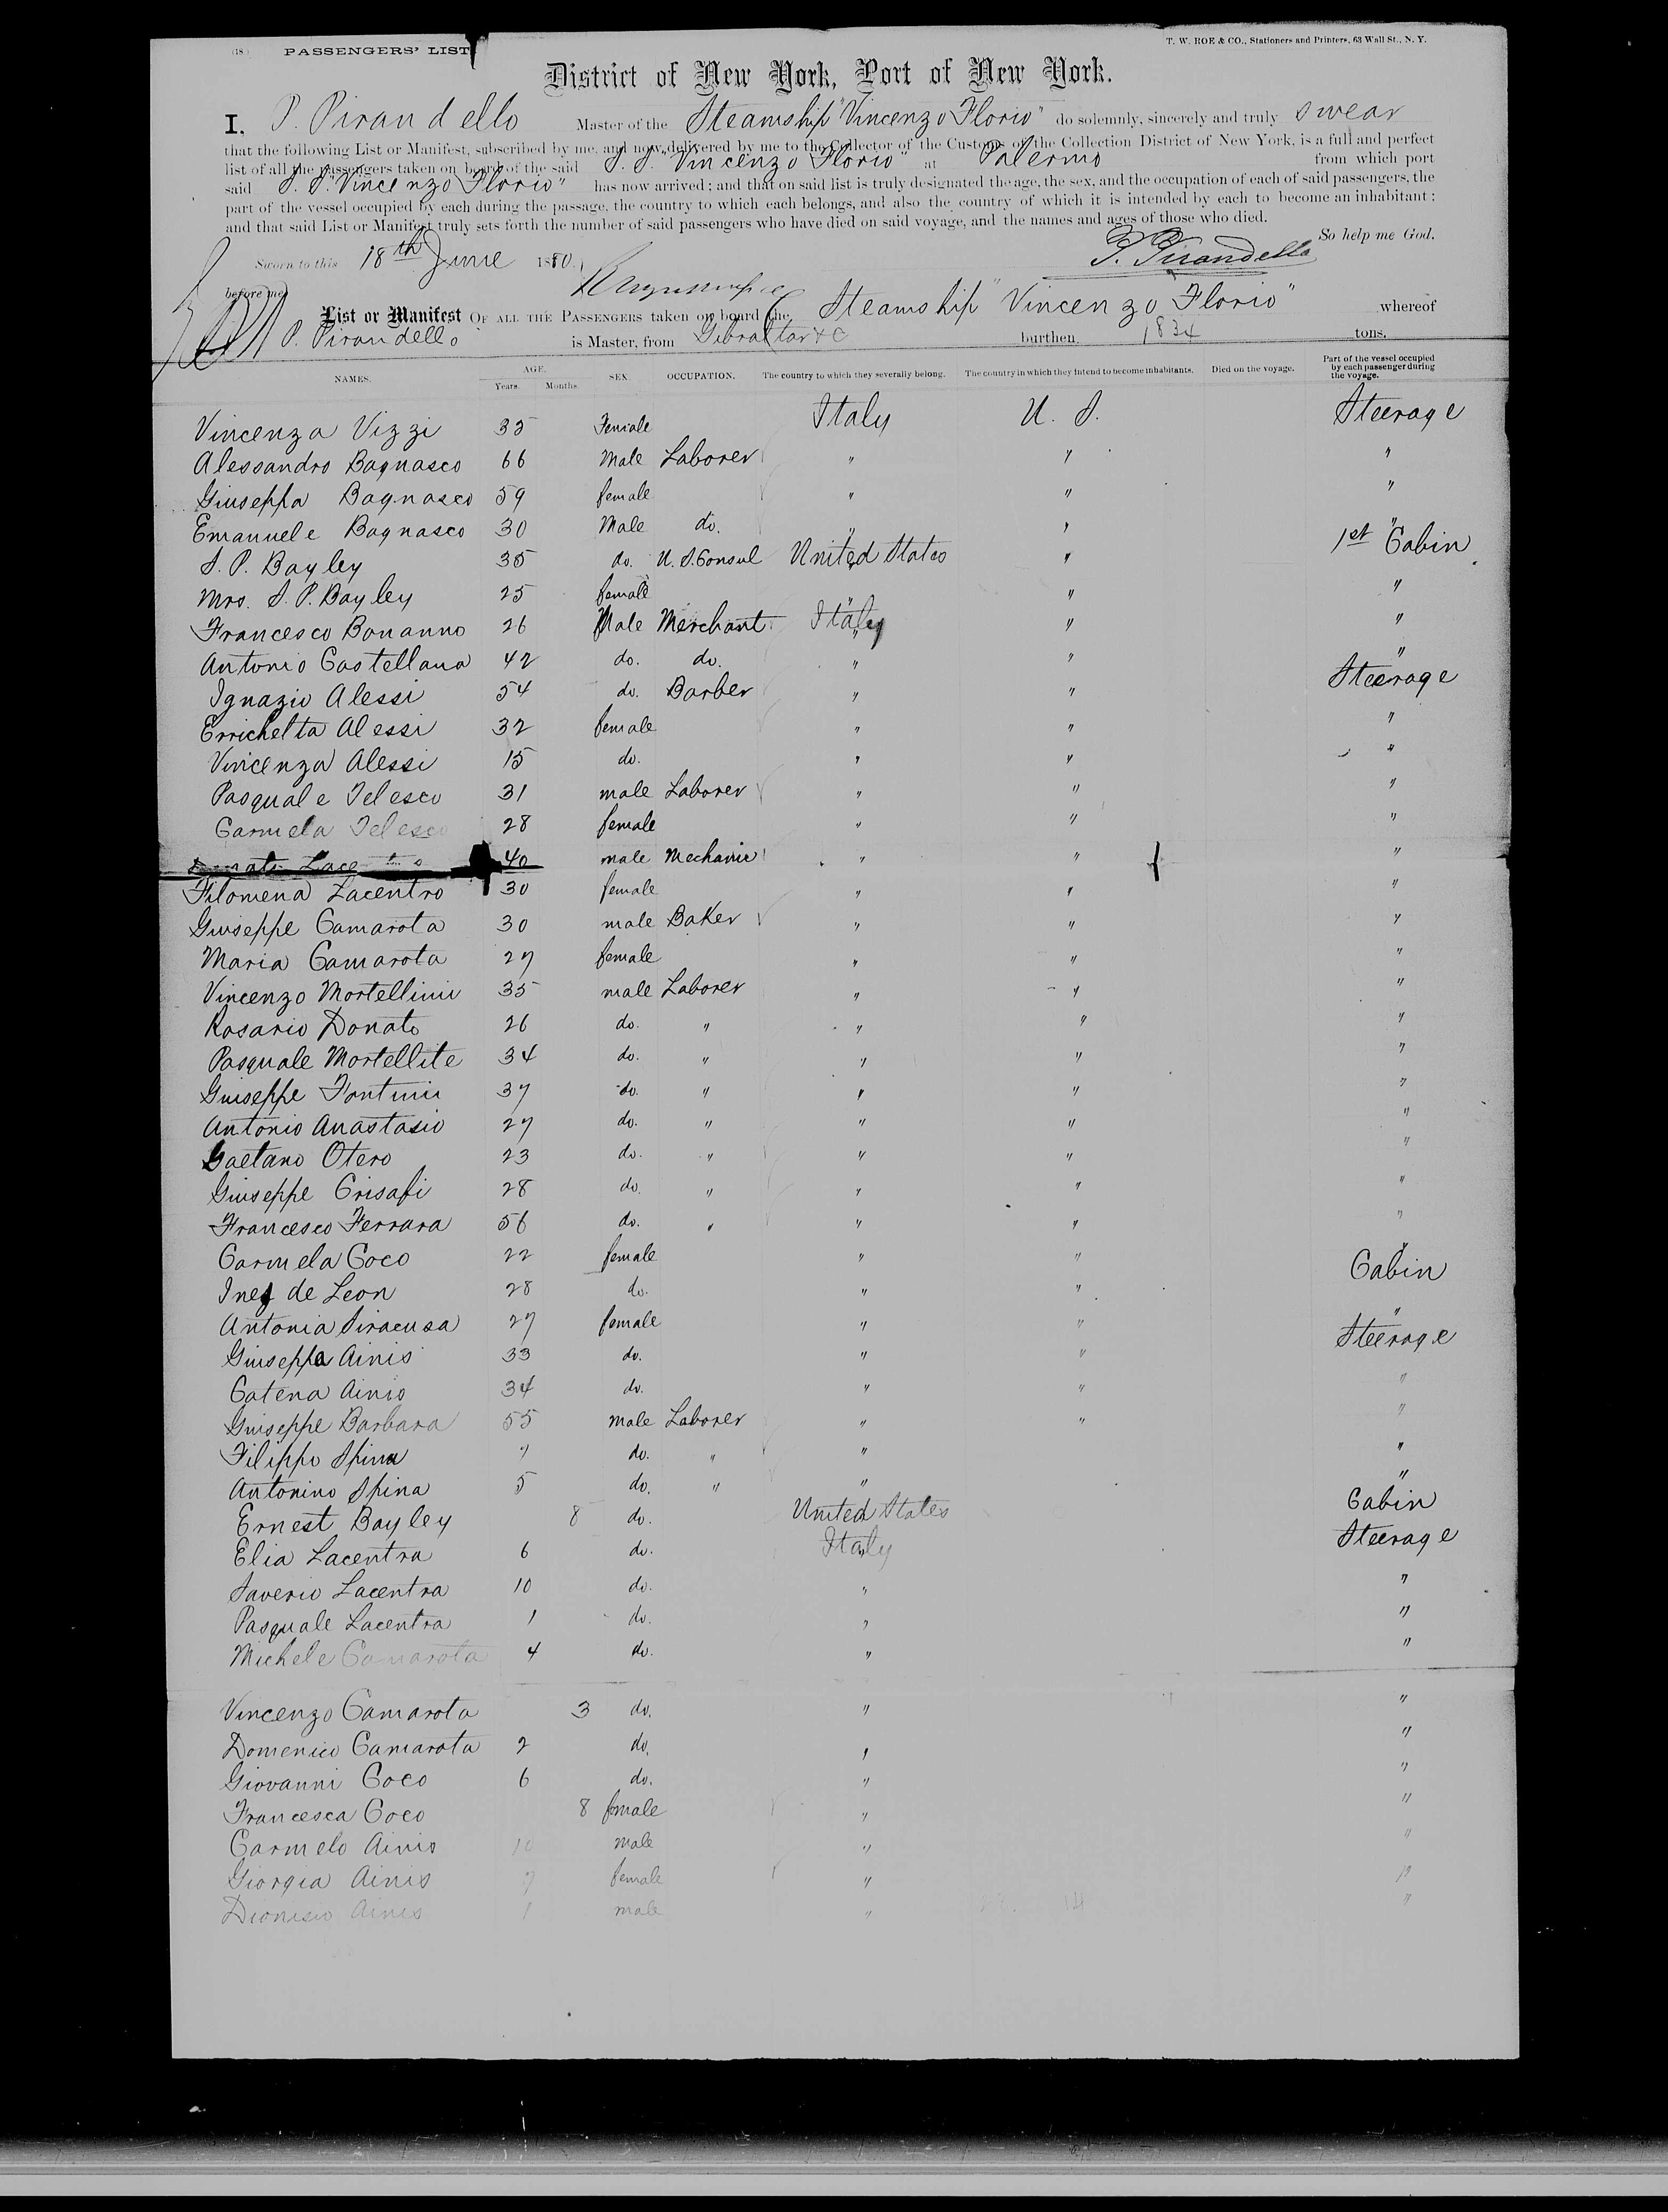 (18.) PASSENGERS' LIST
T. W. ROE & CO., Stationers and Printers, 63 Wall St., N. Y.
District of New York, Port of New York.
I, P. Pirandello Master of the Steamship "Vincenzo Florio" do solemnly, sincerely and truly swear
that the following List or Manifest, subscribed by me, and now delivered by me to the Collector of the Customs of the Collection District of New York, is a full and perfect
list of all the passengers taken on board of the said S. S. "Vincenzo Florio" at Palermo from which port
said S. S. "Vincenzo Florio" has now arrived; and that on said list is truly designated the age, the sex, and the occupation of each of said passengers, the
part of the vessel occupied by each during the passage, the country to which each belongs, and also the country of which it is intended by each to become an inhabitant;
and that said List or Manifest truly sets forth the number of said passengers who have died on said voyage, and the names and ages of those who died.
So help me God.
Sworn to this 18th June 1880. P. Pirandello
before me
List or Manifest OF ALL THE PASSENGERS taken on board the Steamship "Vincenzo Florio" whereof
P. Pirandello is Master, from Gibraltar &c burthen 1834 tons.
NAMES. AGE. Years. Months. SEX. OCCUPATION. The country to which they severally belong. The country in which they intend to become inhabitants. Died on the voyage. Part of the vessel occupied by each passenger during the voyage.
Vincenza Vizzi 35 Female Italy U. S. Steerage
Alessandro Bagnasco 66 Male Laborer " " "
Giuseppa Bagnasco 59 female " " "
Emanuele Bagnasco 30 Male do. " " "
S. P. Bayley 35 do. U. S. Consul United States " 1st Cabin
Mrs. S. P. Bayley 25 female " " "
Francesco Bonanno 26 Male Merchant Italy " "
Antonio Castellana 42 do. do. " " "
Ignazio Alessi 54 do. Barber " " Steerage
Errichetta Alessi 32 female " " "
Vincenza Alessi 15 do. " " "
Pasquale Telesco 31 male Laborer " " "
Carmela Telesco 28 female " " "
40 male Mechanic " " "
Filomena Lacentro 30 female " " "
Giuseppe Camarota 30 male Baker " " "
Maria Camarota 27 female " " "
Vincenzo Mortellini 35 male Laborer " " "
Rosario Donato 26 do. " " " "
Pasquale Mortellite 34 do. " " " "
Giuseppe 37 do. " " " "
Antonio Anastasio 27 do. " " " "
Gaetano Otero 23 do. " " " "
Giuseppe Crisafi 28 do. " " " "
Francesco Ferrara 56 do. " " " "
Carmela Coco 22 female " " "
Inez de Leon 28 do. " " Cabin
Antonia Siracusa 27 female " " "
Giuseppa Ainis 33 do. " " Steerage
Catena Ainis 34 do. " " "
Giuseppe Barbara 55 male Laborer " " "
Filippo Spina 7 do. " " "
Antonino Spina 5 do. " " "
Ernest Bayley 8 do. United States Cabin
Elia Lacentra 6 do. Italy Steerage
Saverio Lacentra 10 do. " "
Pasquale Lacentra 1 do. " "
Michele Camarota 4 do. " "
Vincenzo Camarota 3 do. " "
Domenico Camarota 2 do. " "
Giovanni Coco 6 do. " "
Francesca Coco 8 female " "
Carmelo Ainis 10 male " "
Giorgia Ainis 7 female " "
Dionisio Ainis 1 male " "